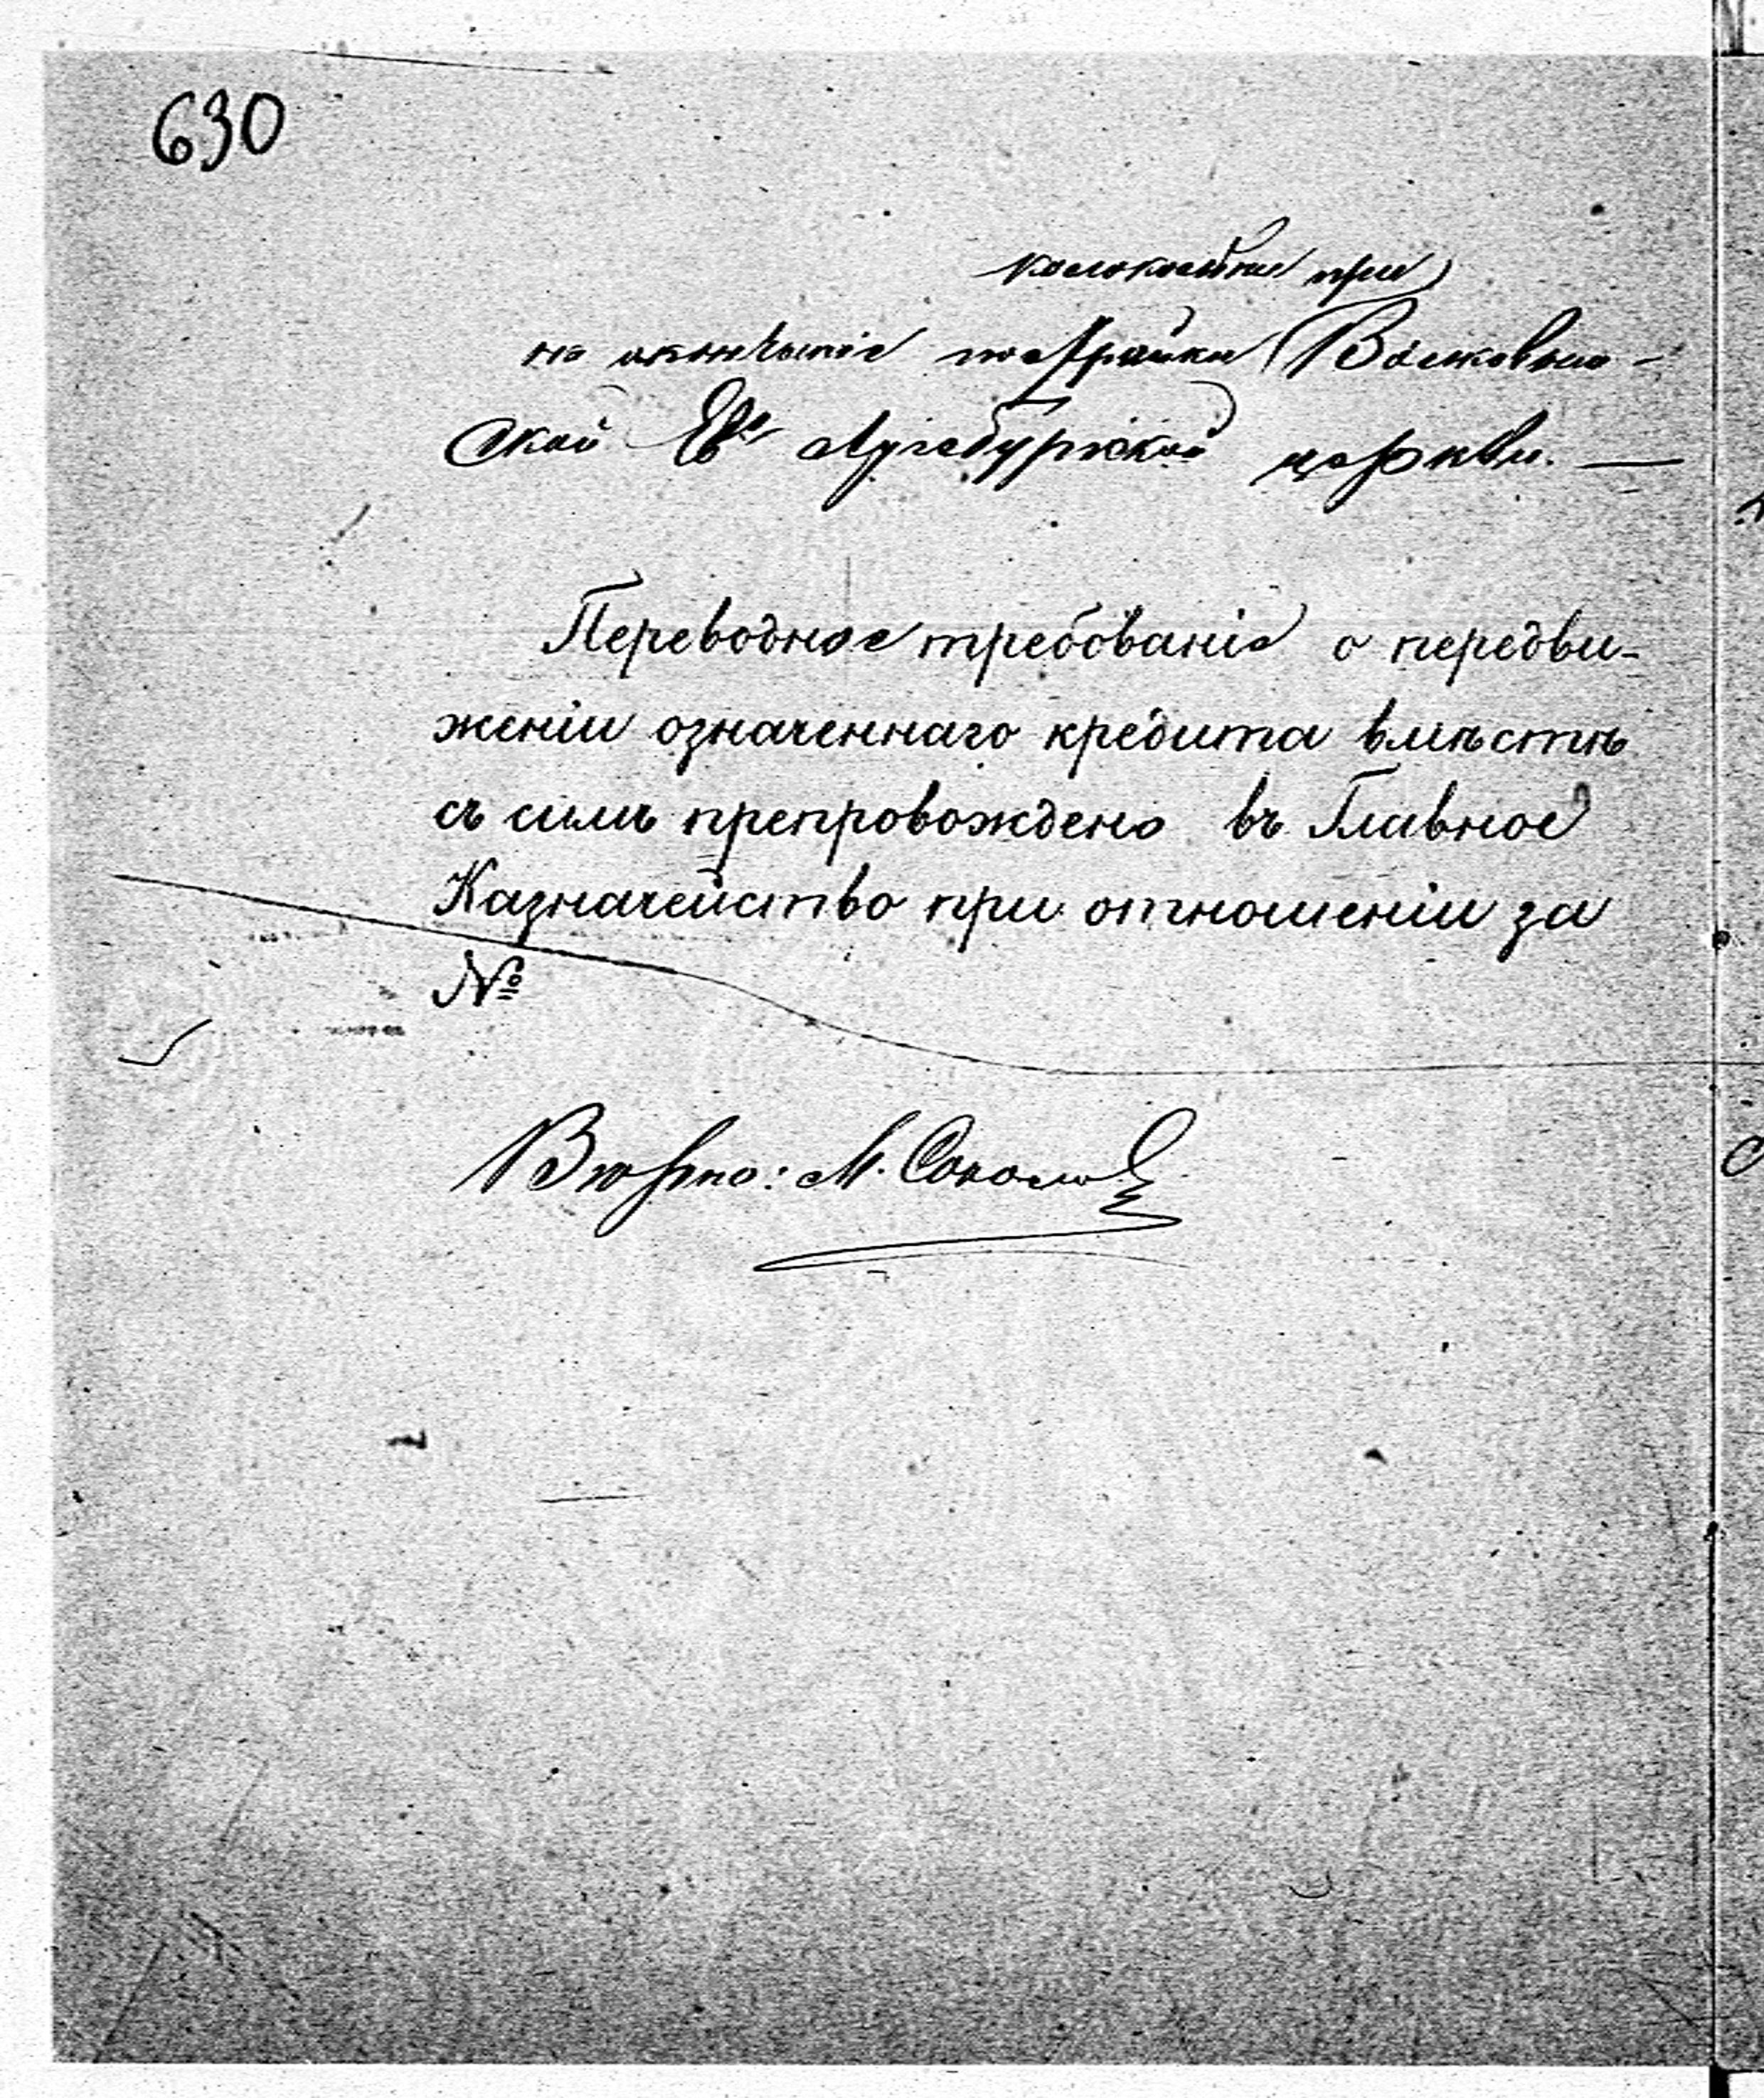 630
колокольни при
на окончаніе постройки Волковыш-
ской Ев. Аугсбургской церкви. —
Переводное требованіе о передви-
женіи означеннаго кредита вмѣстѣ
съ симъ препровождено въ Главное
Казначейство при отношеніи за
№
Вѣрно: М. Соколов